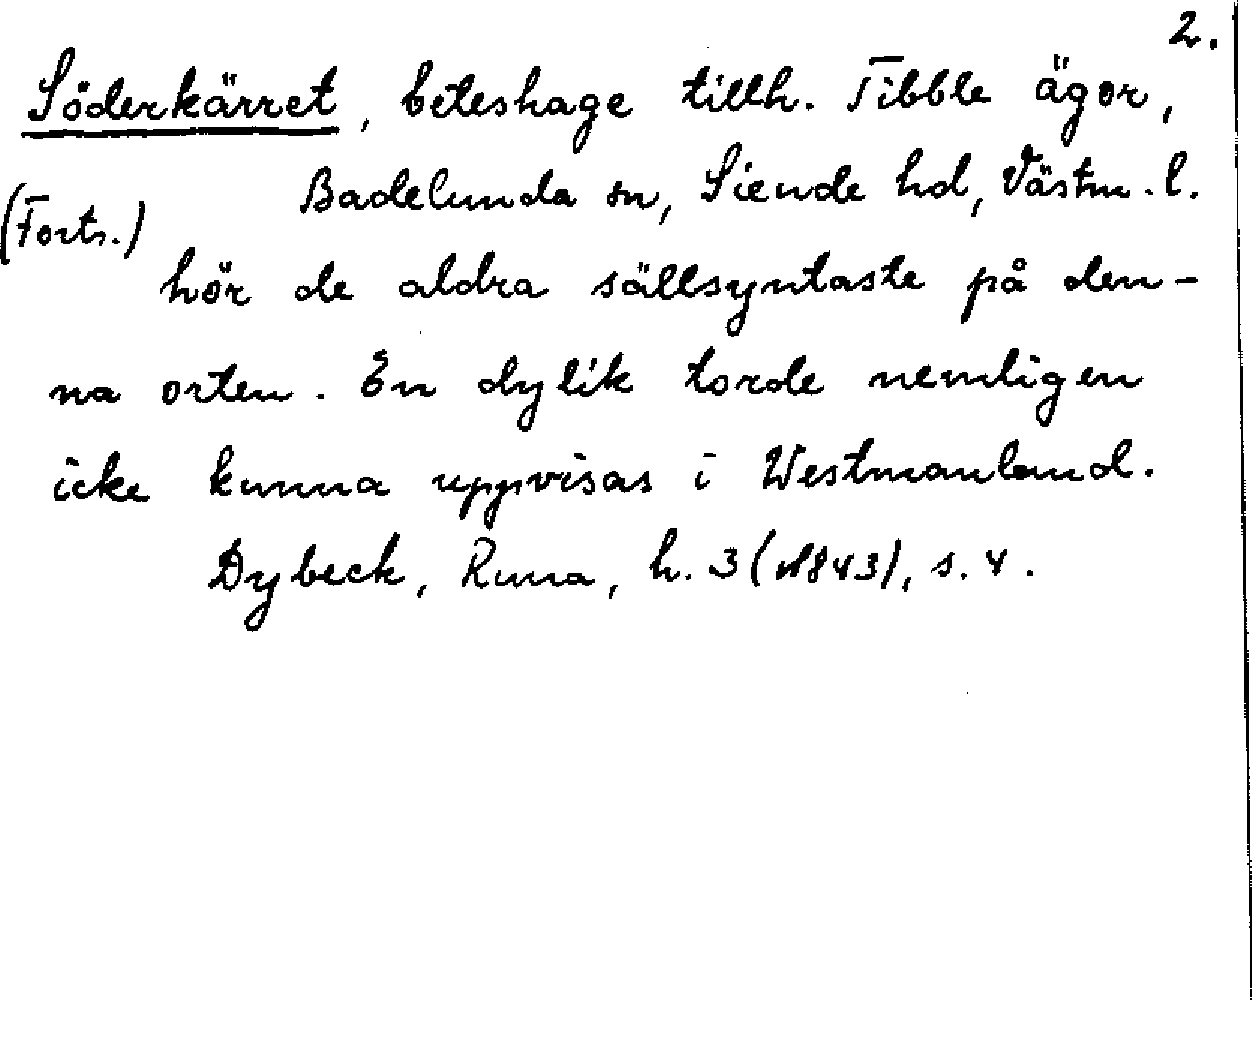 2.
Söderkärret, beteshage tillh. Tibble ägor,
Badelunda sn, Siende hd, Västm. l.
(Forts.)
hör de aldra sällsyntaste på den-
na orten. En dylik torde nemligen
icke kunna uppvisas i Westmanland.
Dybeck, Runa, h. 3 (1843), s. 4.